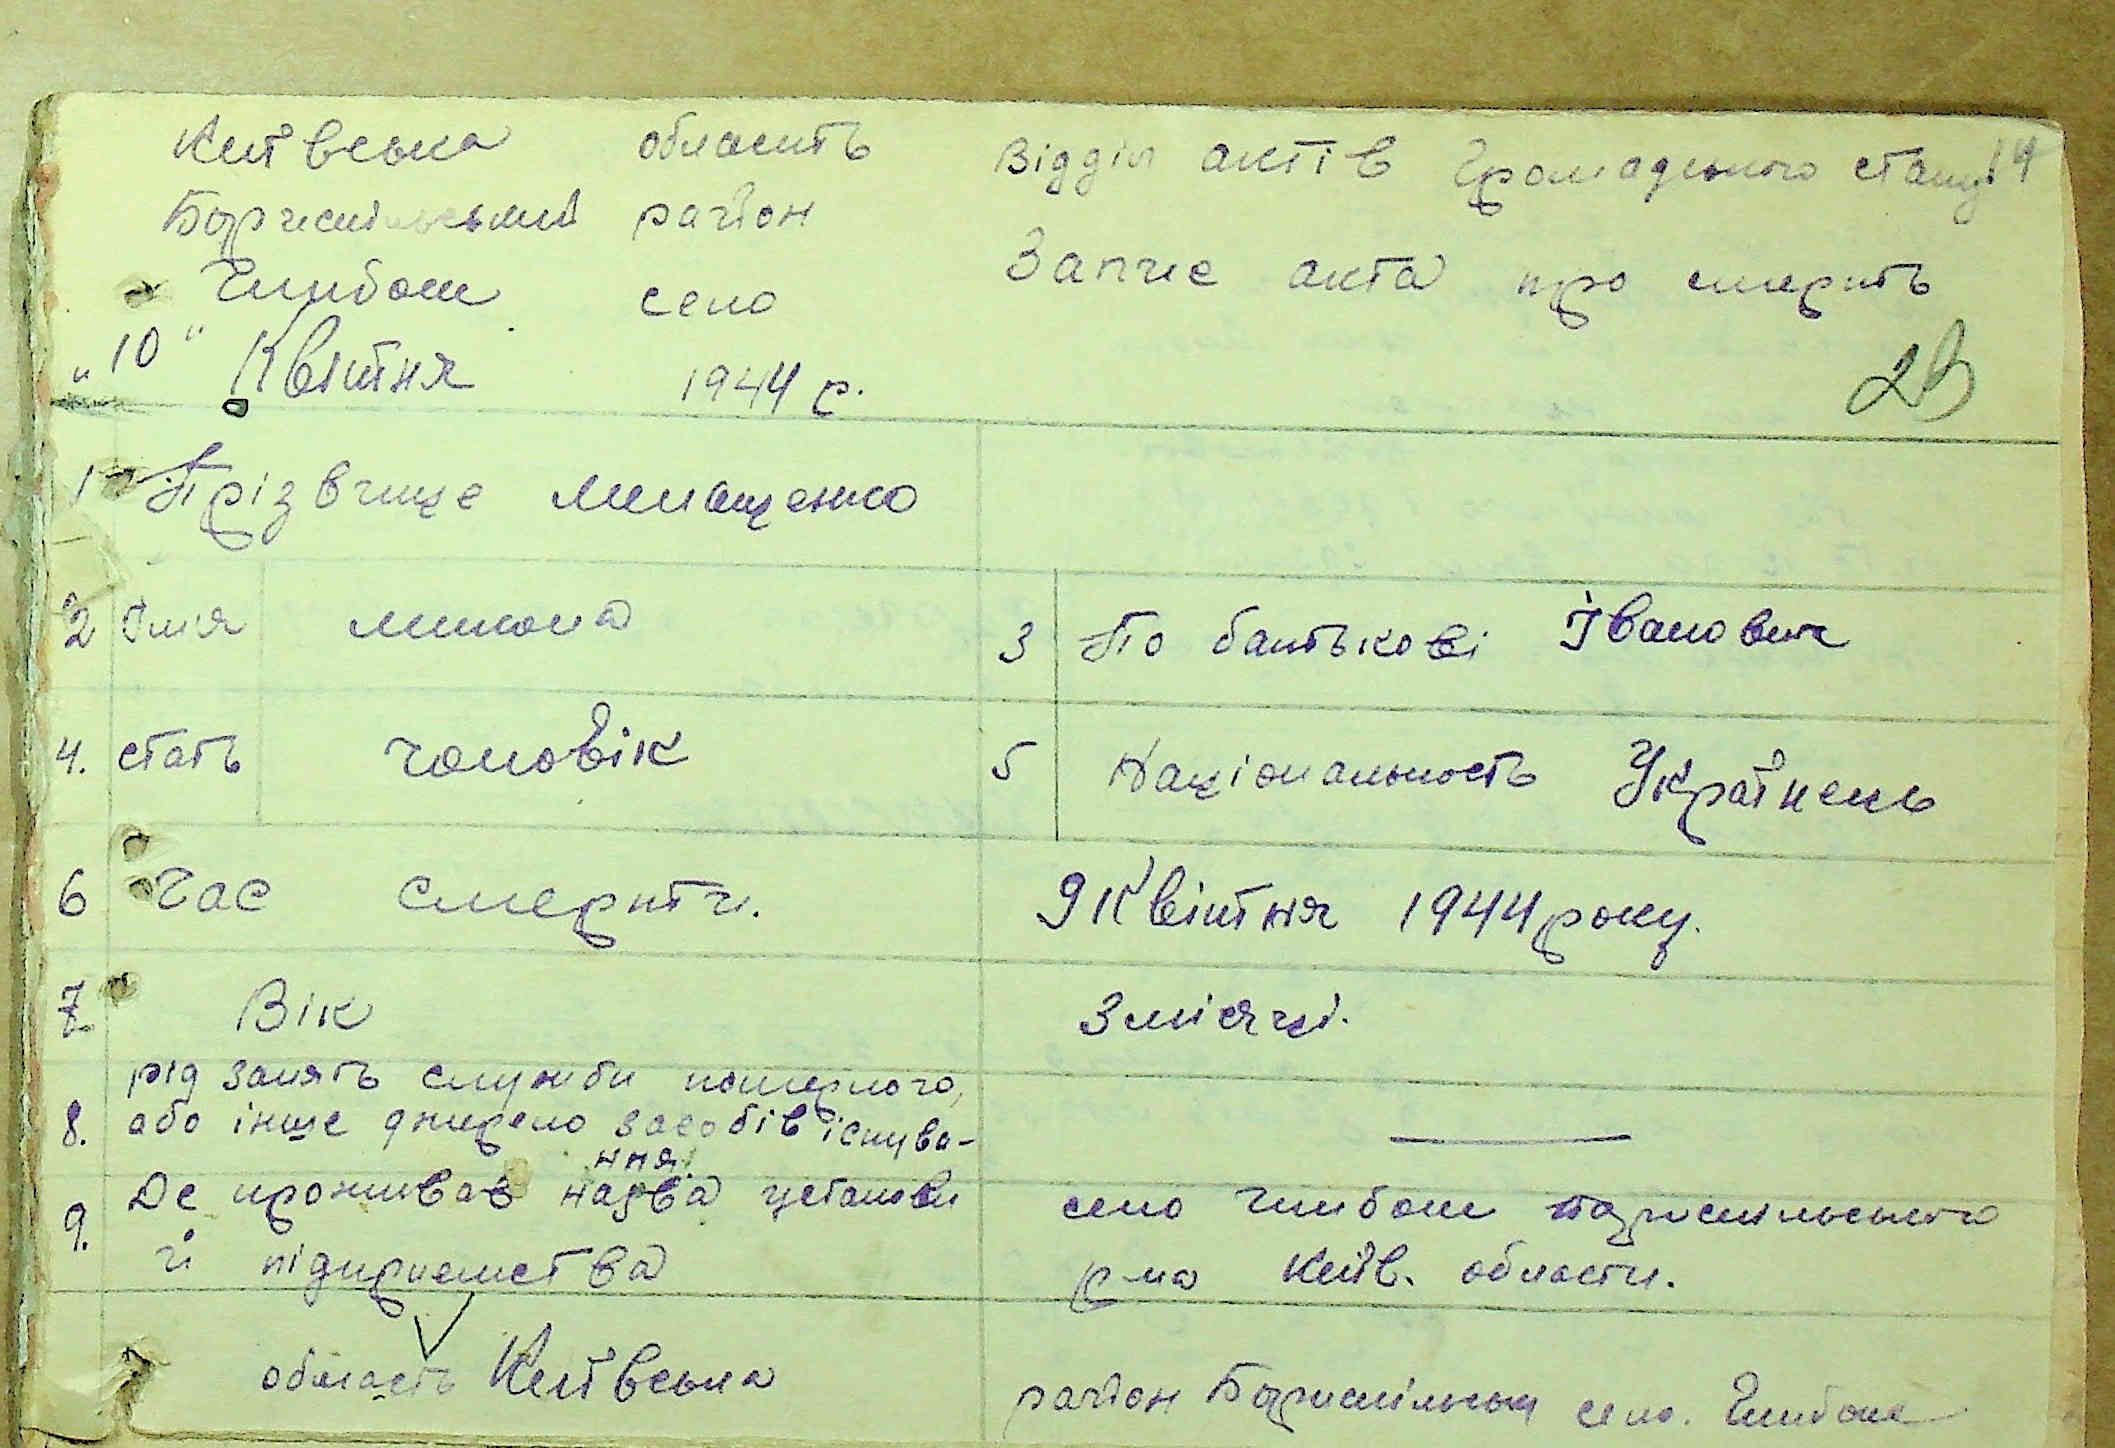 Київська область Відділ актів Громадського стану 14
Бориспільський район
Запис акта про смерть
Глибоке село
"10" Квітня 1944 р.
1 Прізвище Мелащенко
2 Імя микола 3 По батькові Іванович
4. стать чоловік 5 Національность Українець
6 Час смерти. 9 Квітня 1944 року.
7 Вік 3 місяці.
рід занять служби померлого,
8. або інше джерело засобів існува-
ння.
9. Де проживав назва установи
й підприємства
село Глибоке Бориспільського
р-на Київ. области.
область Київська район Бориспільськи село. Глибоке